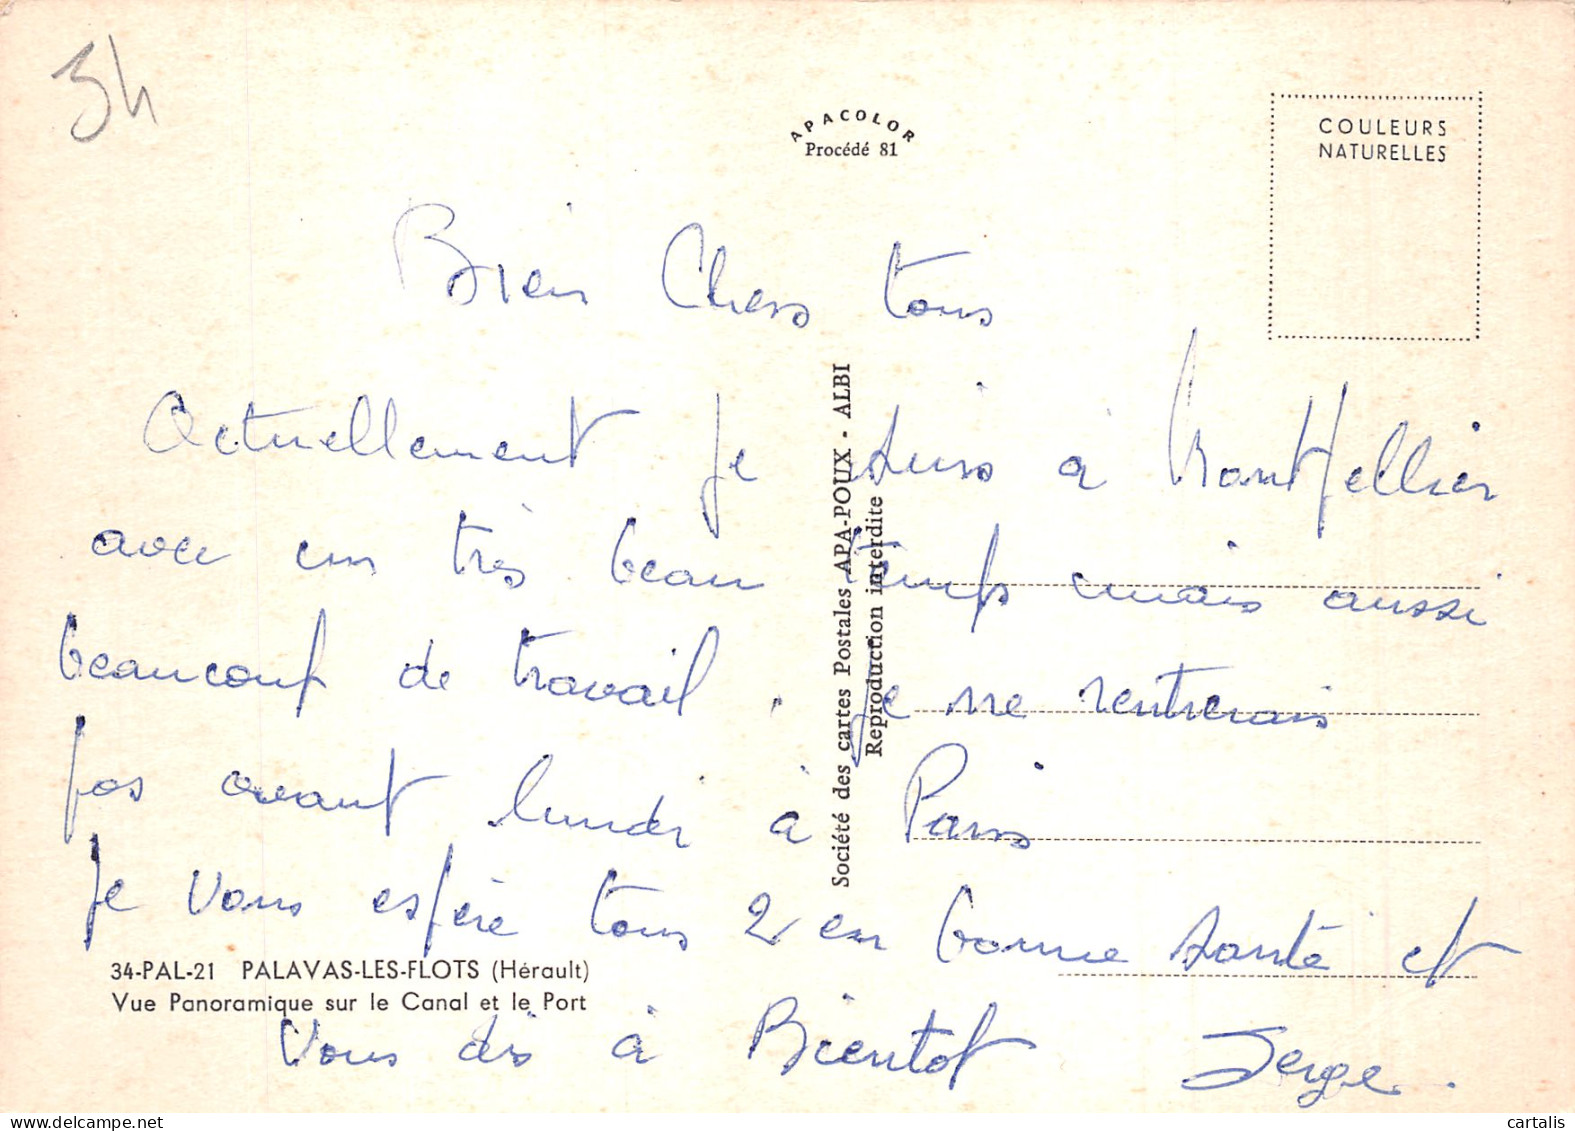 34
APACOLOR
Procédé 81
COULEURS
NATURELLES
Bien Chers tous
Actuellement je suis à Montpellier
avec un très beau temps mais aussi
beaucoup de travail. je ne rentrerais
pas avant lundi à Paris
Je vous espère tous 2 en bonne santé et
vous dis à Bientot Serge.
Société des cartes Postales APA-POUX - ALBI
Reproduction interdite
34-PAL-21 PALAVAS-LES-FLOTS (Hérault)
Vue Panoramique sur le Canal et le Port
cartalis.com